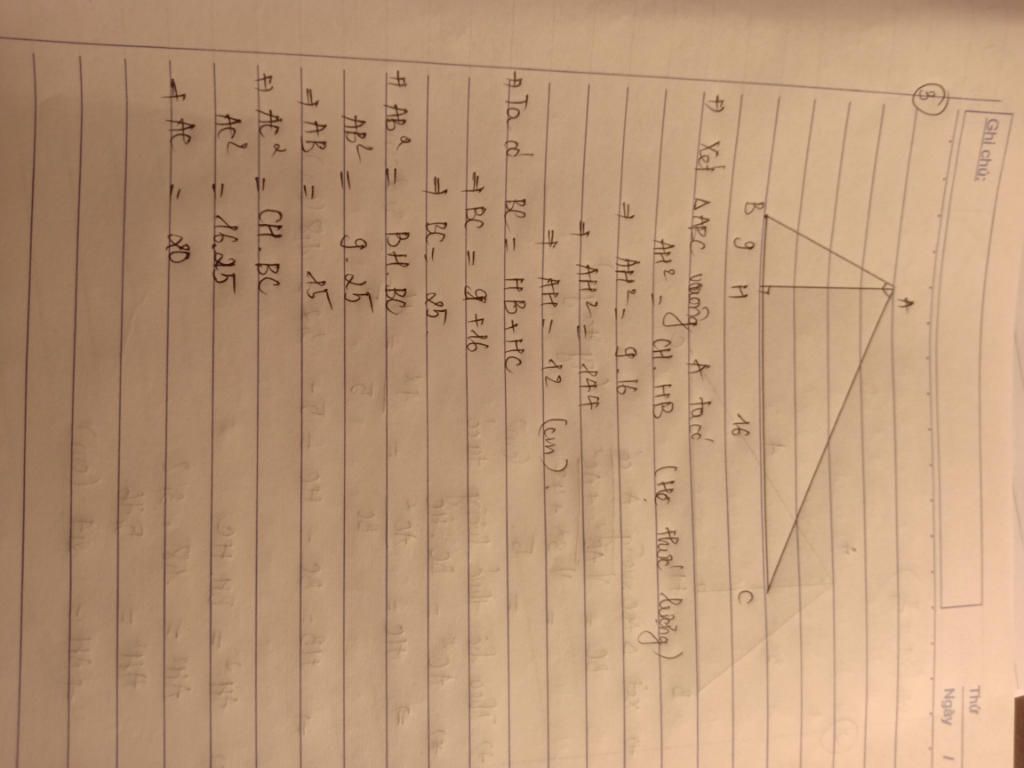 Ghi chú:
Thứ
Ngày /
3
A
B 9 H 16 C
+) Xét ΔABC vuông A ta có
AH² = CH.HB (Hệ thức lượng)
⇒ AH² = 9.16
⇒ AH² = 144
⇒ AH = 12 (cm)
+) Ta có BC = HB + HC
⇒ BC = 9 + 16
⇒ BC = 25
+) AB² = BH.BC
AB² = 9.25
⇒ AB = 15
+) AC² = CH.BC
AC² = 16.25
⇒ AC = 20